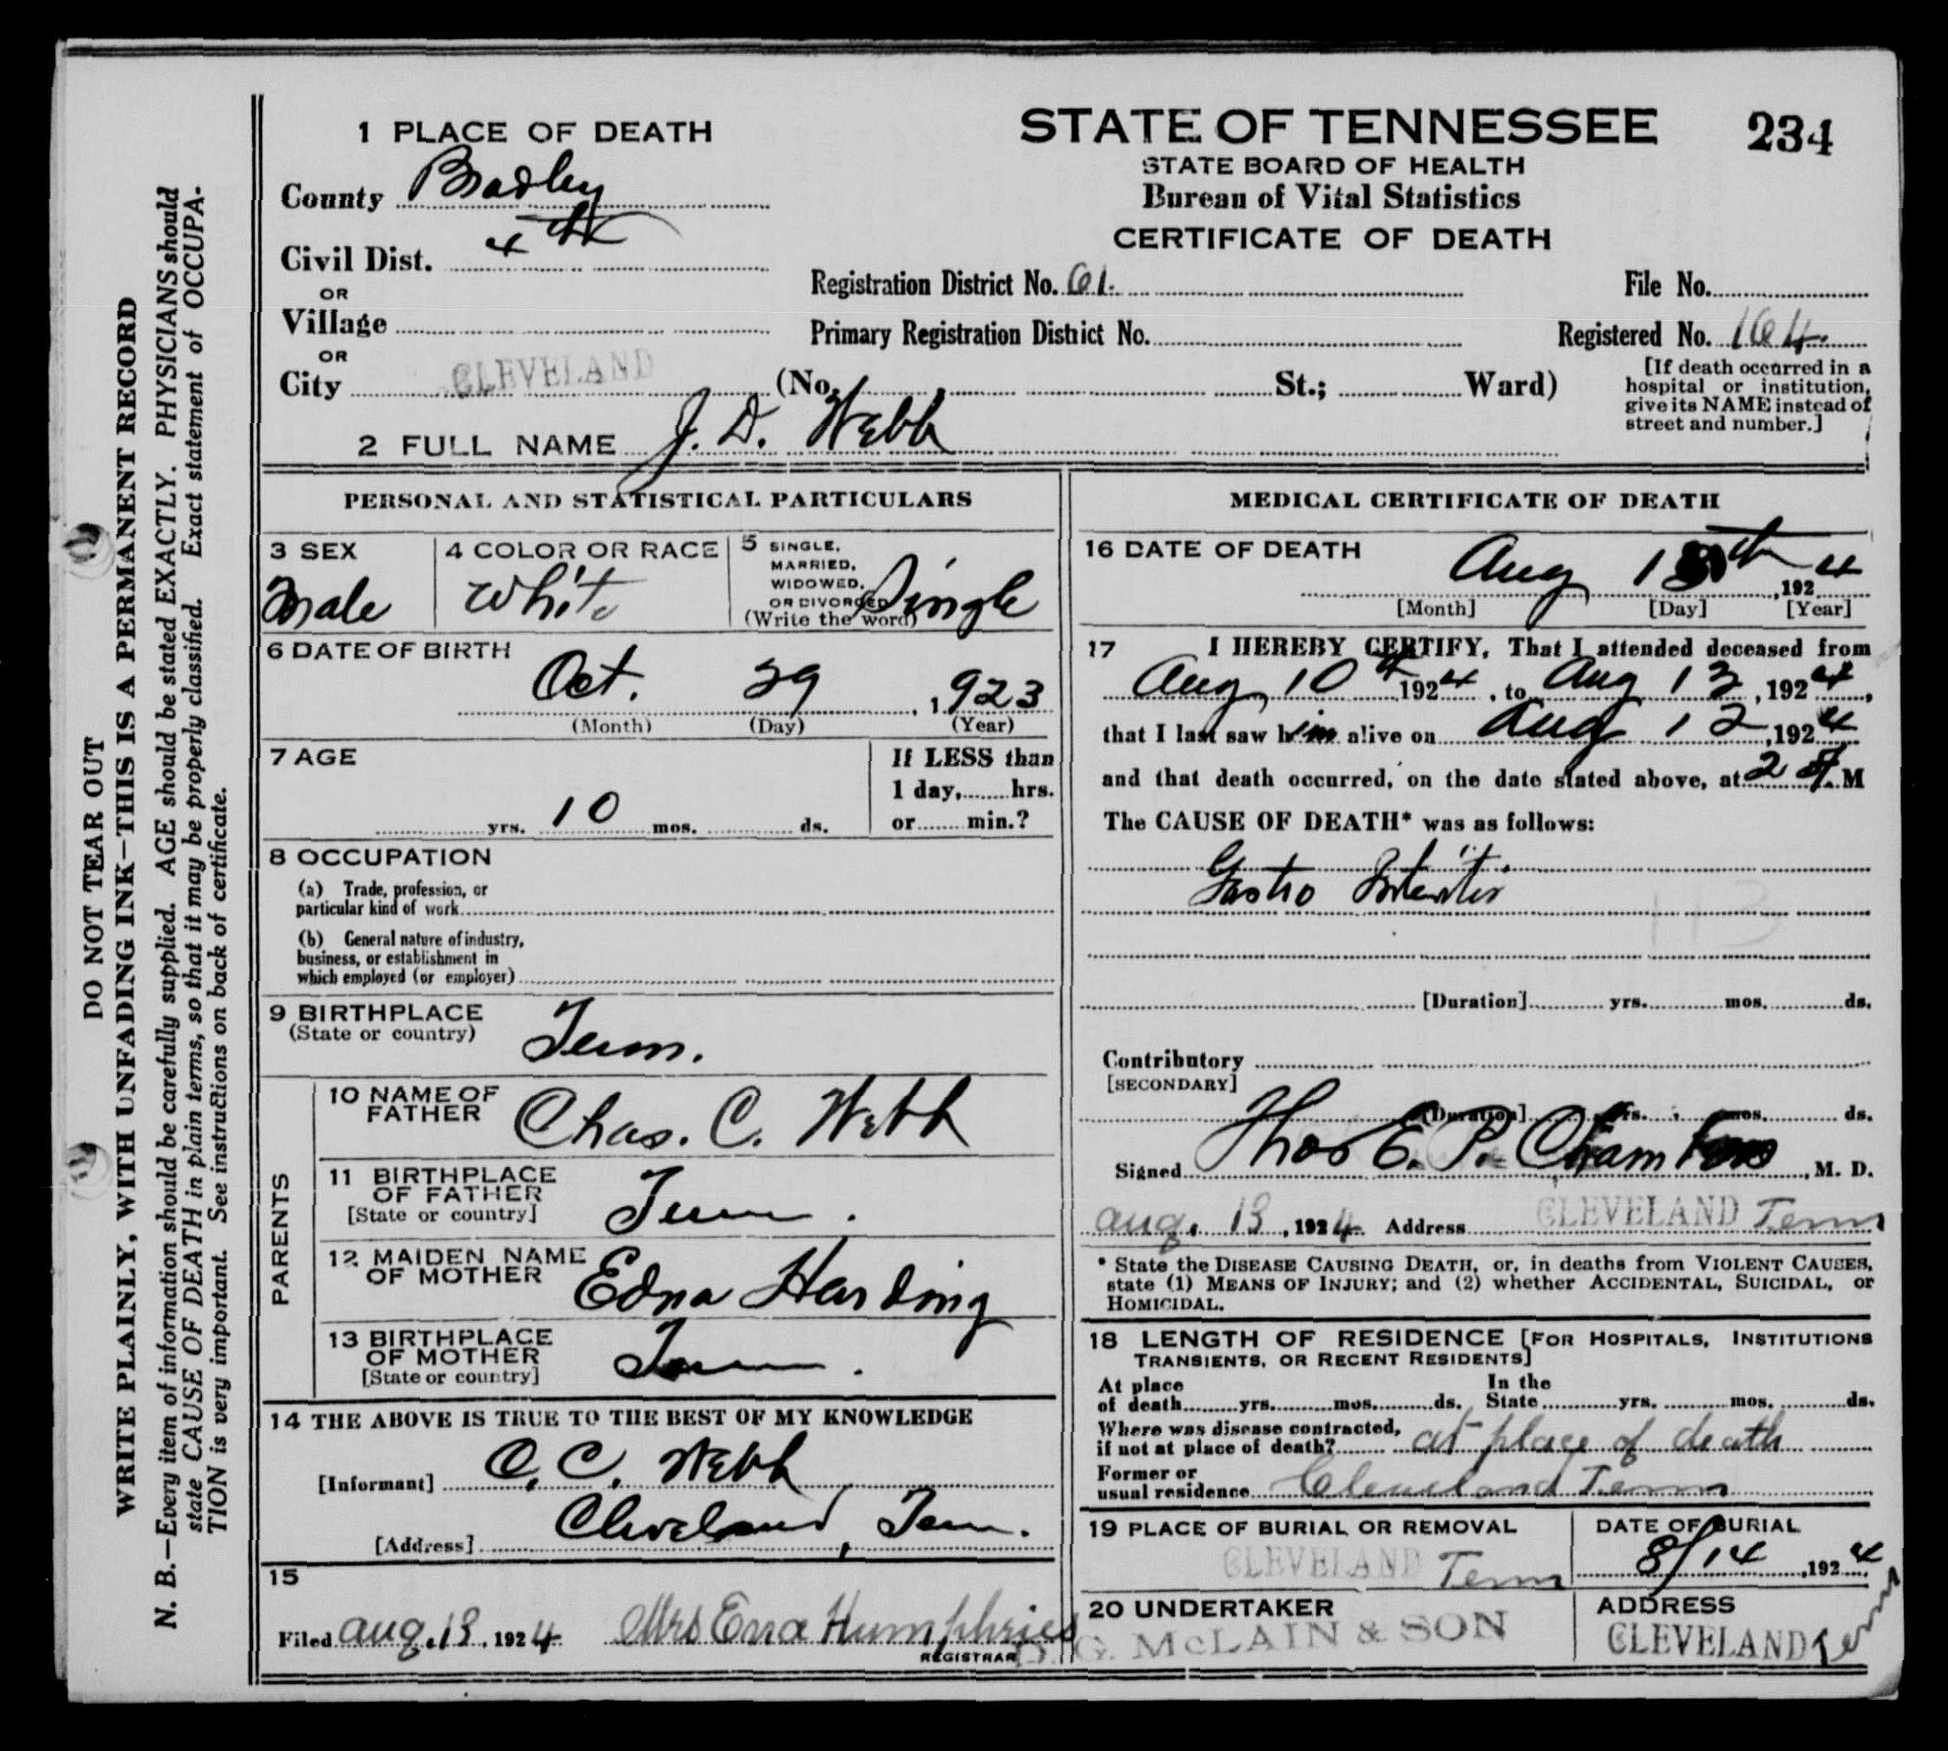 DO NOT TEAR OUT
WRITE PLAINLY, WITH UNFADING INK—THIS IS A PERMANENT RECORD
N. B.—Every item of information should be carefully supplied. AGE should be stated EXACTLY. PHYSICIANS should
state CAUSE OF DEATH in plain terms, so that it may be properly classified. Exact statement of OCCUPA-
TION is very important. See instructions on back of certificate.
1 PLACE OF DEATH
County Bradley
Civil Dist. 4th
OR
Village
OR
City CLEVELAND (No. St.; Ward)
STATE OF TENNESSEE
234
STATE BOARD OF HEALTH
Bureau of Vital Statistics
CERTIFICATE OF DEATH
Registration District No. 61. File No.
Primary Registration District No. Registered No. 164.
[If death occurred in a
hospital or institution,
give its NAME instead of
street and number.]
2 FULL NAME J. D. Webb
PERSONAL AND STATISTICAL PARTICULARS
3 SEX
Male
4 COLOR OR RACE
White
5 SINGLE,
MARRIED,
WIDOWED,
OR DIVORCED
(Write the word) Single
6 DATE OF BIRTH
Oct. 29, 1923
(Month) (Day) (Year)
7 AGE
yrs. 10 mos. ds.
If LESS than
1 day, hrs.
or min.?
8 OCCUPATION
(a) Trade, profession, or
particular kind of work
(b) General nature of industry,
business, or establishment in
which employed (or employer)
9 BIRTHPLACE
(State or country) Tenn.
PARENTS
10 NAME OF
FATHER Chas. C. Webb
11 BIRTHPLACE
OF FATHER
[State or country] Tenn.
12 MAIDEN NAME
OF MOTHER Edna Harding
13 BIRTHPLACE
OF MOTHER
[State or country] Tenn.
14 THE ABOVE IS TRUE TO THE BEST OF MY KNOWLEDGE
[Informant] C. C. Webb
[Address] Cleveland, Tenn.
15
Filed Aug. 13, 1924 Mrs Ena Humphries
REGISTRAR
MEDICAL CERTIFICATE OF DEATH
16 DATE OF DEATH
Aug 13th, 1924
[Month] [Day] [Year]
17 I HEREBY CERTIFY, That I attended deceased from
Aug 10th 1924, to Aug 13, 1924,
that I last saw him alive on Aug 12, 1924
and that death occurred, on the date stated above, at 2 A. M
The CAUSE OF DEATH* was as follows:
Gastro Enteritis
113
[Duration] yrs. mos. ds.
Contributory
[SECONDARY]
[Duration] yrs. mos. ds.
Signed Thos E. P. Chambers, M. D.
Aug. 13, 1924 Address CLEVELAND Tenn
* State the DISEASE CAUSING DEATH, or, in deaths from VIOLENT CAUSES,
state (1) MEANS OF INJURY; and (2) whether ACCIDENTAL, SUICIDAL, or
HOMICIDAL.
18 LENGTH OF RESIDENCE [FOR HOSPITALS, INSTITUTIONS
TRANSIENTS, OR RECENT RESIDENTS]
At place In the
of death yrs. mos. ds. State yrs. mos. ds.
Where was disease contracted,
if not at place of death? at place of death
Former or
usual residence Cleveland Tenn
19 PLACE OF BURIAL OR REMOVAL
CLEVELAND Tenn
DATE OF BURIAL
8/14, 1924
20 UNDERTAKER
G. McLAIN & SON
ADDRESS
CLEVELAND Tenn